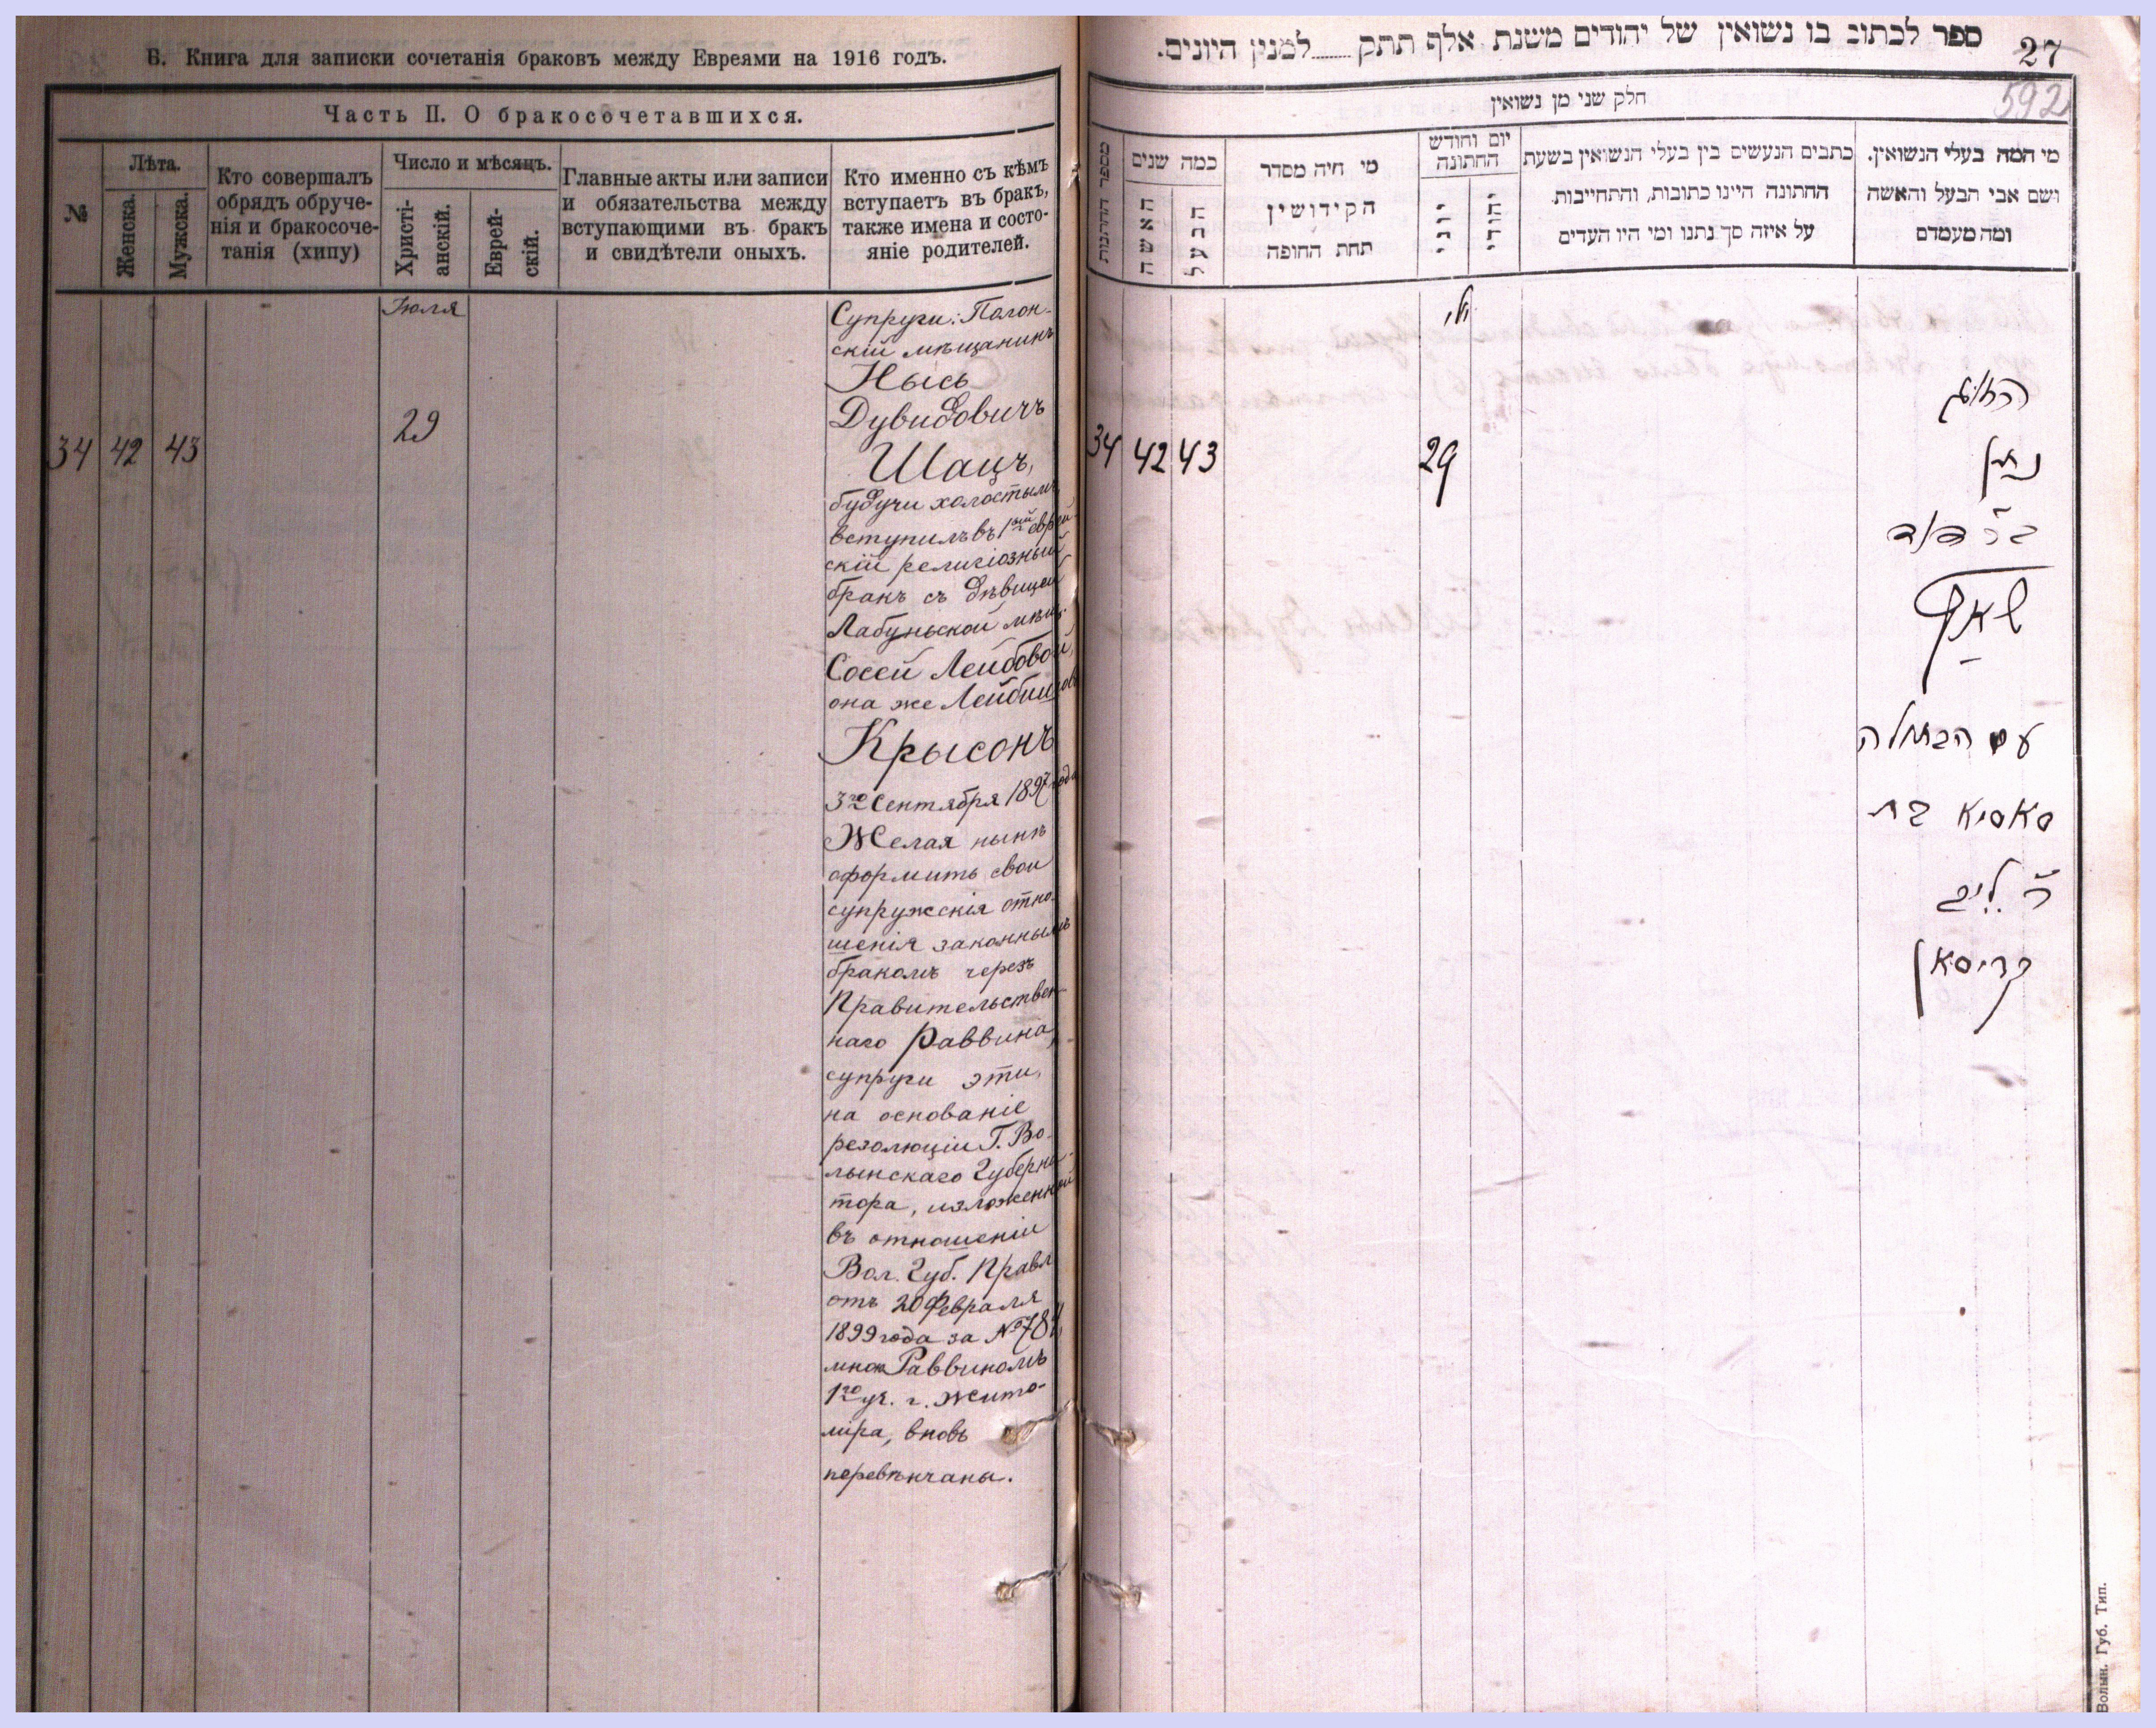 Б. Книга для записки сочетанія браковъ между Евреями на 1916 годъ.
Часть II. О бракосочетавшихся.
№
Лѣта.
Женска.
Мужска.
Кто совершалъ
обрядъ обруче-
нія и бракосоче-
танія (хипу)
Число и мѣсяцъ.
Христі-
анскій.
Еврей-
скій.
Главные акты или записи
и обязательства между
вступающими въ бракъ
и свидѣтели оныхъ.
Кто именно съ кѣмъ
вступаетъ въ бракъ,
также имена и состо-
яніе родителей.
Іюля
34 42 43 29
Супруги: Полон-
скій мѣщанинъ
Нысь
Дувидовичъ
Шацъ,
будучи холостымъ
вступилъ въ 1ый еврей
скій религіозный
бракъ съ дѣвицей
Лабуньской мѣщ.
Сосей Лейбовой,
она же
Крысонъ
3го Сентября 1897 года
Желая нынѣ
оформить свои
супружскія отно-
шенія законнымъ
бракомъ черезъ
Правительствен-
наго Раввина,
супруги эти,
на основаніе
резолюціи Г. Во-
лынскаго Губерна-
тора, изложенной
въ отношеніи
Вол. Губ. Правл
отъ 20 Февраля
1899 года за №
мною Раввиномъ
1го уч. г. Жито-
міра, вновь
перевѣнчаны.
ספר לכתוב בו נשואין של יהודים משנת אלף תתק ........ למנין היונים.
27
592
חלק שני מן נשואין
מי המה בעלי הנשואין.
ושם אבי הבעל והאשה
ומה מעמדם
כתבים הנעשים בין בעלי הנשואין בשעת
החתונה היינו כתובות, והתחייבות
על איזה סך נתנו ומי היו העדים
יום וחודש
החתונה
יהודי
יוני
מי היה מסדר
הקידושין
תחת החופה
כמה שנים
הבעל
האשה
מספר החתונות
34 42 43 29
נתן
בר דוד
שאץ
עם הבתולה
סאסיא בת
ר' לייב
קריסאן
Волын. Губ. Тип.